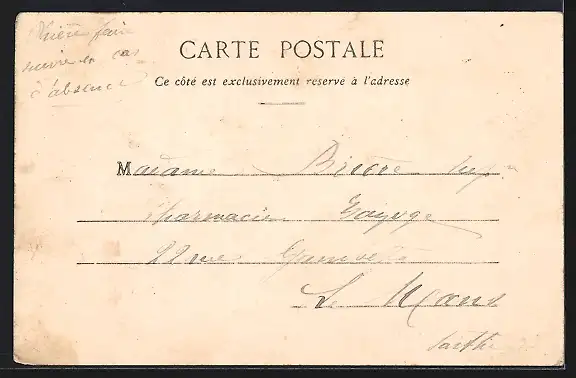 Prière faire
suivre en cas
d'absence
CARTE POSTALE
Ce côté est exclusivement reserve à l'adresse
Madame
pharmacien
22 rue
Le Mans
Sarthe